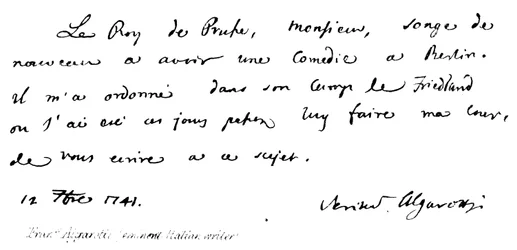 Le Roy de Prusse, monsieur, songe de
nouveau a avoir une Comedie a Berlin.
il m'a ordonné dans son Camp de Friedland
ou j'ai eté ces jours passez luy faire ma cour,
de vous ecrire a ce sujet.
12 7bre 1741. Algarotti
Algarotti eminent Italian writer